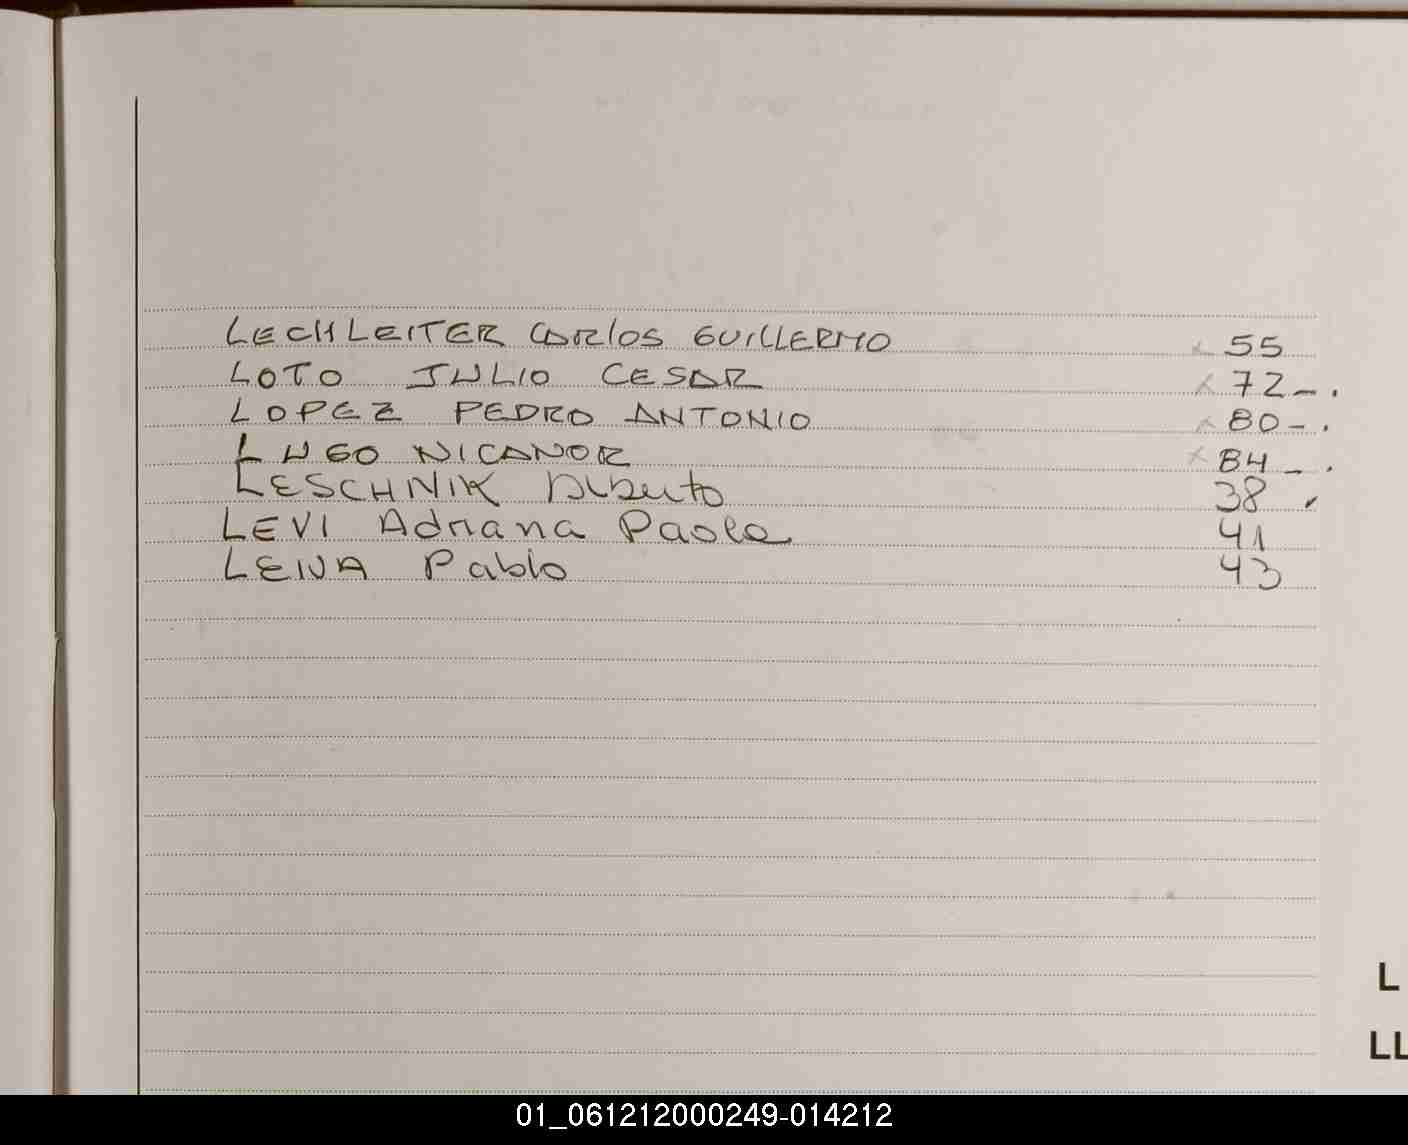 LECHLEITER CARlOS GUILLERMO x 55
LOTO JULIO CESAR x 72 - .
LOPEZ PEDRO ANTONIO x 80 - .
LUGO NICANOR x 84 - .
LESCHNIK Alberto 38
LEVI Adriana Paola 41
LEIVA Pablo 43
L
LL
01_061212000249-014212